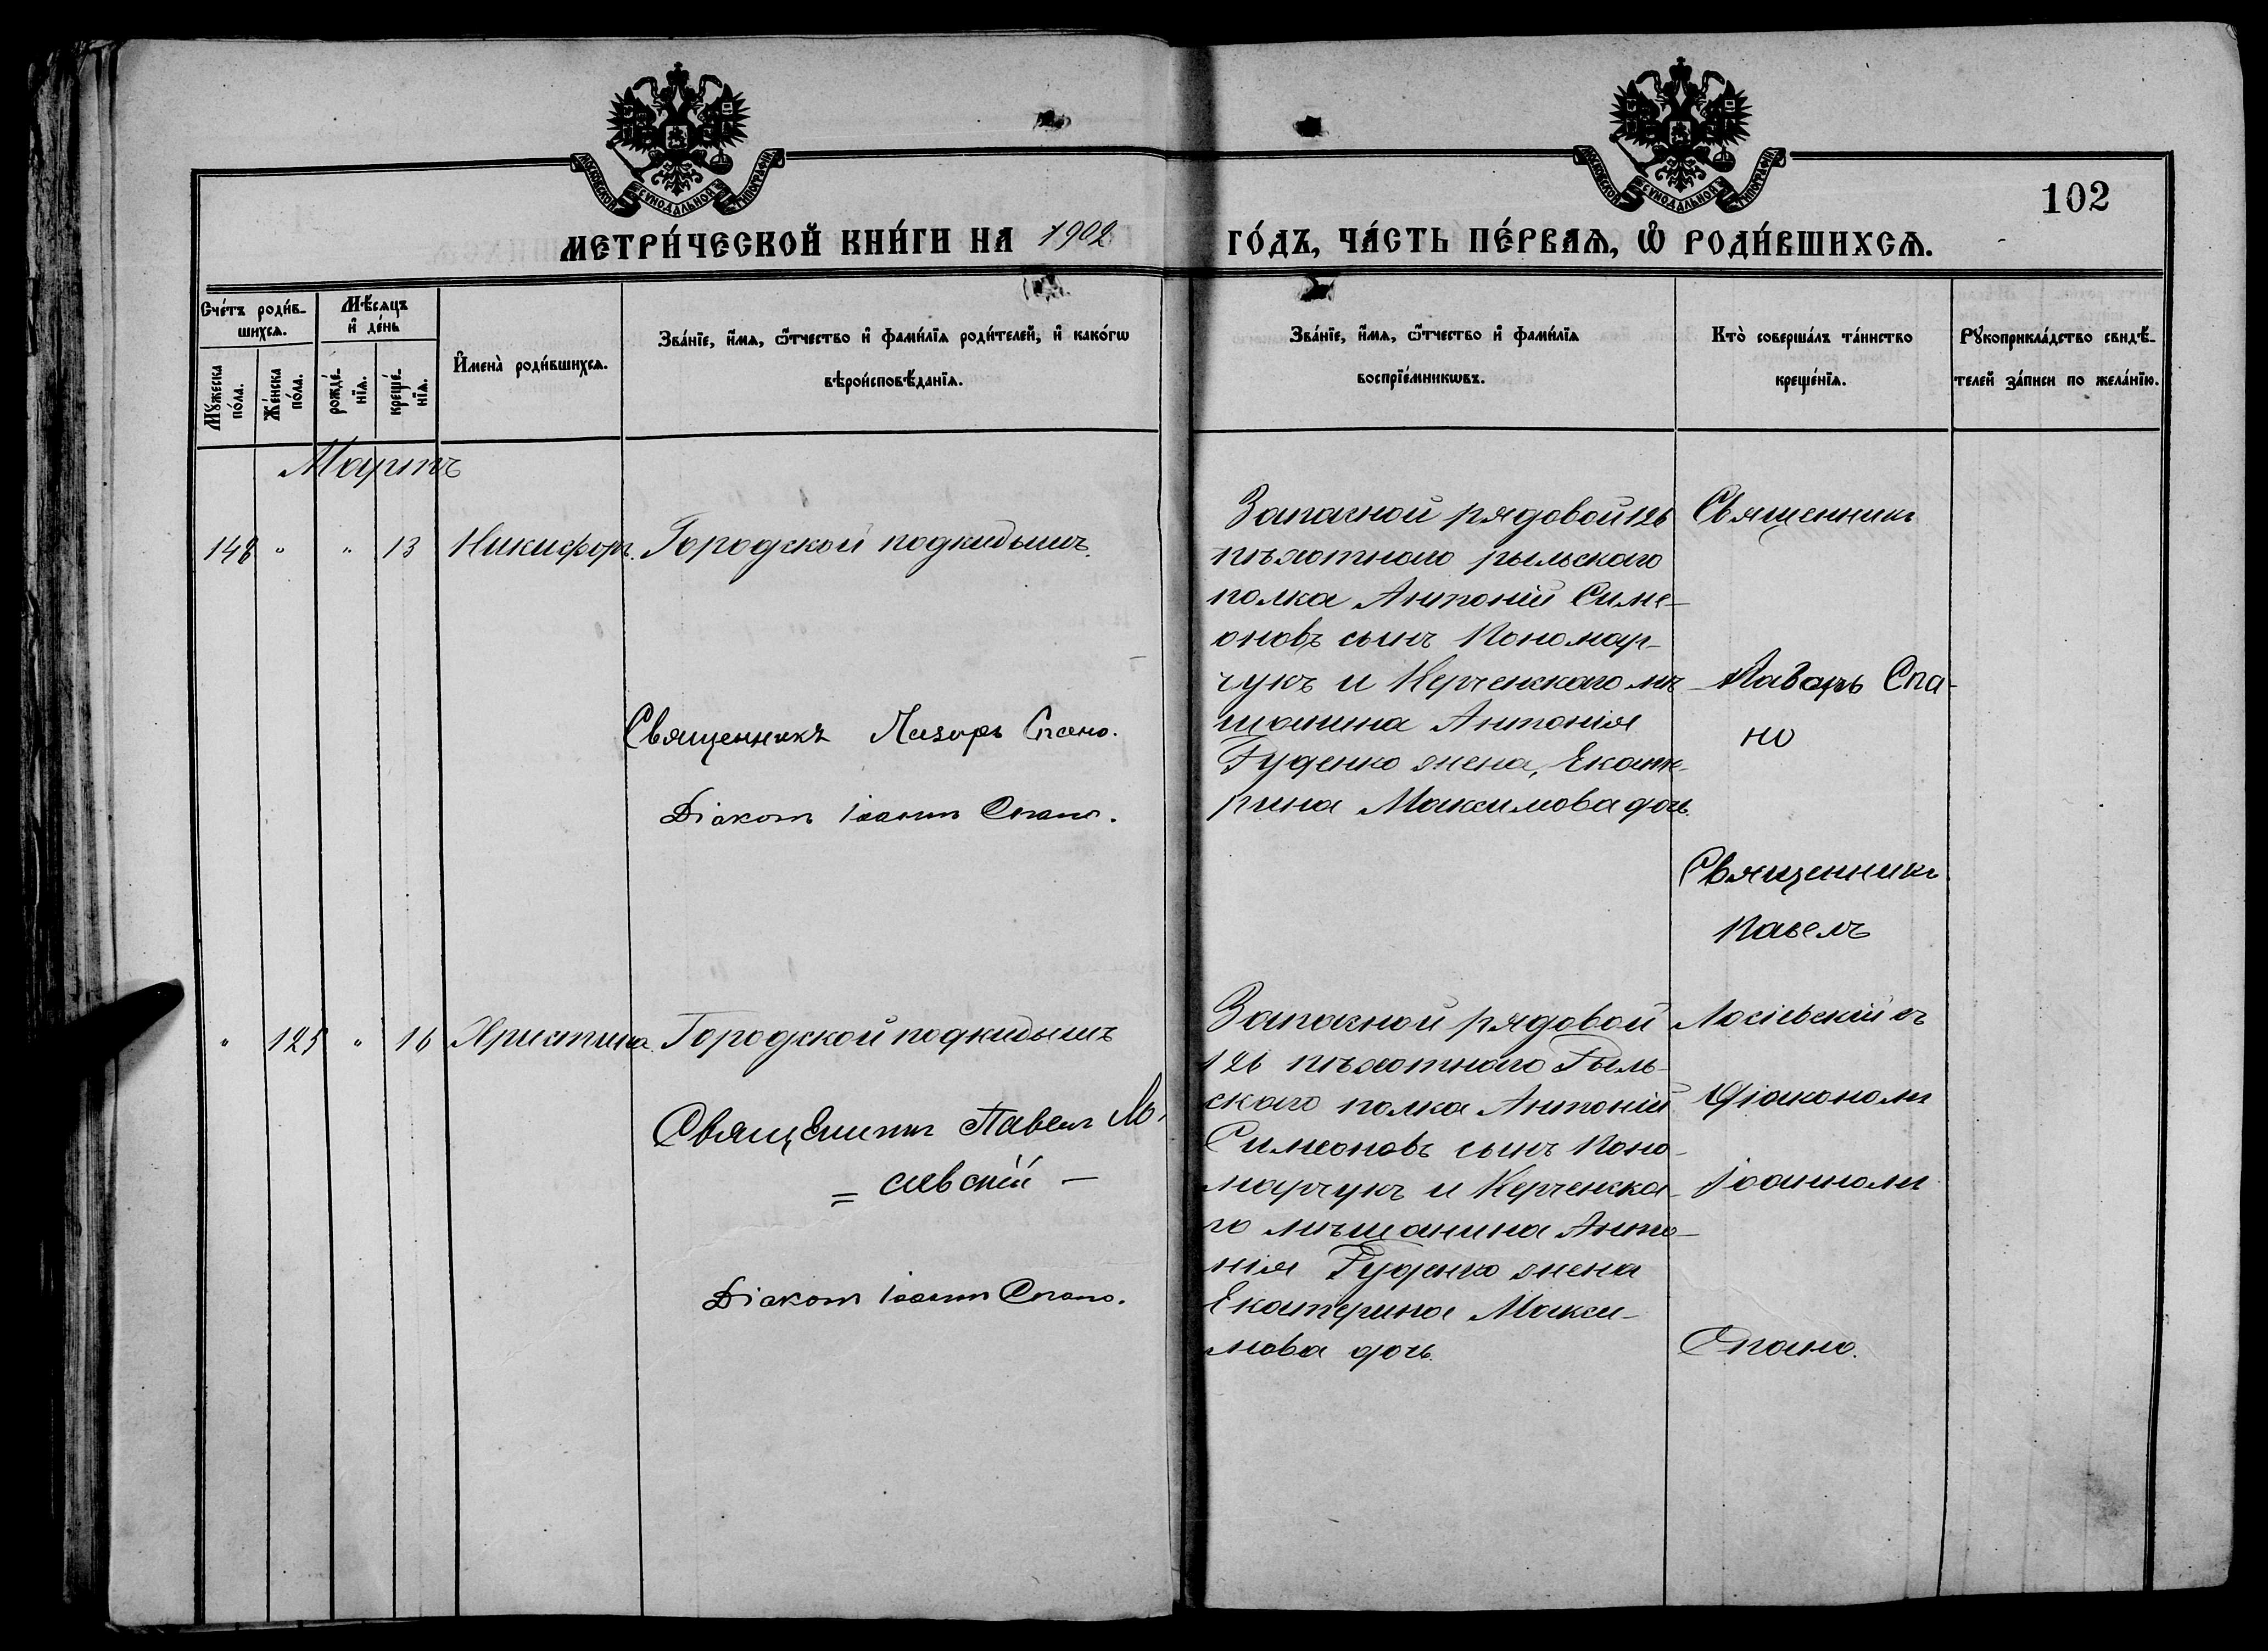 МОСКОВСКОЙ СѴНОДАЛЬНОЙ ТИПОГРАФІИ
МОСКОВСКОЙ СѴНОДАЛЬНОЙ ТИПОГРАФІИ
102
МЕТРИ́ЧЕСКОЙ КНИ́ГИ НА 1902 ГО́ДЪ, ЧА́СТЬ ПЕ́РВАѦ, Ѡ҆ РОДИ́ВШИХСѦ.
Сче́тъ роди́в-
шихсѧ.
Мꙋ́жеска
по́ла.
Же́нска
по́ла.
Мѣ́сѧцъ
и҆ де́нь
рожде́-
нїѧ.
креще́-
нїѧ.
И҆мена̀ роди́вшихсѧ.
Зва́нїе, и҆́мѧ, ѻ҆́тчество и҆ фами́лїѧ роди́телей, и҆ како́гѡ
вѣроисповѣ́данїѧ.
Зва́нїе, и҆́мѧ, ѻ҆́тчество и҆ фами́лїѧ
воспрїе́мникѡвъ.
Кто̀ соверша́лъ та́инство
креще́нїѧ.
Рꙋкоприкла́дство свидѣ́-
телей за́писи по жела́нїю.
Мартъ
148 " " 13 Никифоръ. Городской подкидышъ.
Священникъ Лазарь Спано.
Діаконъ Іоаннъ Спано.
Запасной рядовой 126
пѣхотнаго рыльскаго
полка Антоній Симе-
оновъ сынъ Пономар-
чукъ и Керченскаго мѣ-
щанина Антонія
Гуденко жена, Екате-
рина Максимова дочь.
Священникъ
Лазарь Спа-
но
" 125 " 16 Христина. Городской подкидышъ
Священникъ Павелъ Ло-
= сіевскій —
Діаконъ Іоаннъ Спано.
Запасной рядовой
126 пѣхотнаго Рыль-
скаго полка Антоній
Симеоновъ сынъ Поно-
марчукъ и Керченска-
го мѣщанина Анто-
нія Гуденко жена
Екатерина Макси-
мова дочь.
Священникъ
Павелъ
Лосіевскій съ
Діакономъ
Іоанномъ
Спано.